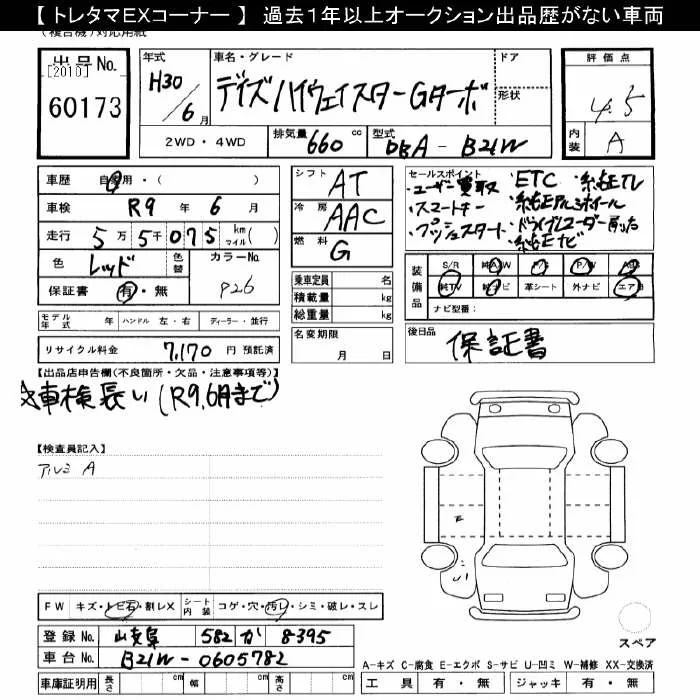 【 トレタマEXコーナー 】 過去1年以上オークション出品歴がない車両
(複合機)対応用紙
出品No.
[2010]
60173
年式
H30/6月
車名・グレード
デイズ ハイウェイスターGターボ
ドア
形状
評価点
4.5
内装
A
2WD・4WD
排気量
660 cc
型式
DBA - B21W
車歴 自家用・( )
車検 R9 年 6 月
走行 5万5千075 km マイル( )
色 レッド
色替
カラーNo. 926
保証書 有・無
シフト AT
冷房 AAC
燃料 G
乗車定員 名
積載量 kg
総重量 kg
セールスポイント
・ユーザー買取 ・ETC ・純正TV
・スマートキー ・純正アルミホイール
・プッシュスタート ・ドライブレコーダー
・純正ナビ
装備品
S/R 純A/W P/S P/W ABS
純TV 純ナビ 革シート 外ナビ エアB
ナビ型番:
モデル年式 年 ハンドル 左・右 ディーラー・並行
リサイクル料金 7,170 円 預託済
名変期限
月 日
後日品
保証書
【出品店申告欄(不良箇所・欠品・注意事項等)】
車検長い(R9.6月まで)
【検査員記入】
アルミ A
A-キズ C-腐食 E-エクボ S-サビ U-凹ミ W-補修 XX-交換済
E
U1
スペア
FW キズ・トビ石・割レX
シート内装 コゲ・穴・汚レ・シミ・破レ・スレ
登録No. 582 か 8395
車台No. B21W-0605782
車庫証明用 長さ cm 幅 cm 高さ cm
工具 有・無 ジャッキ 有・無